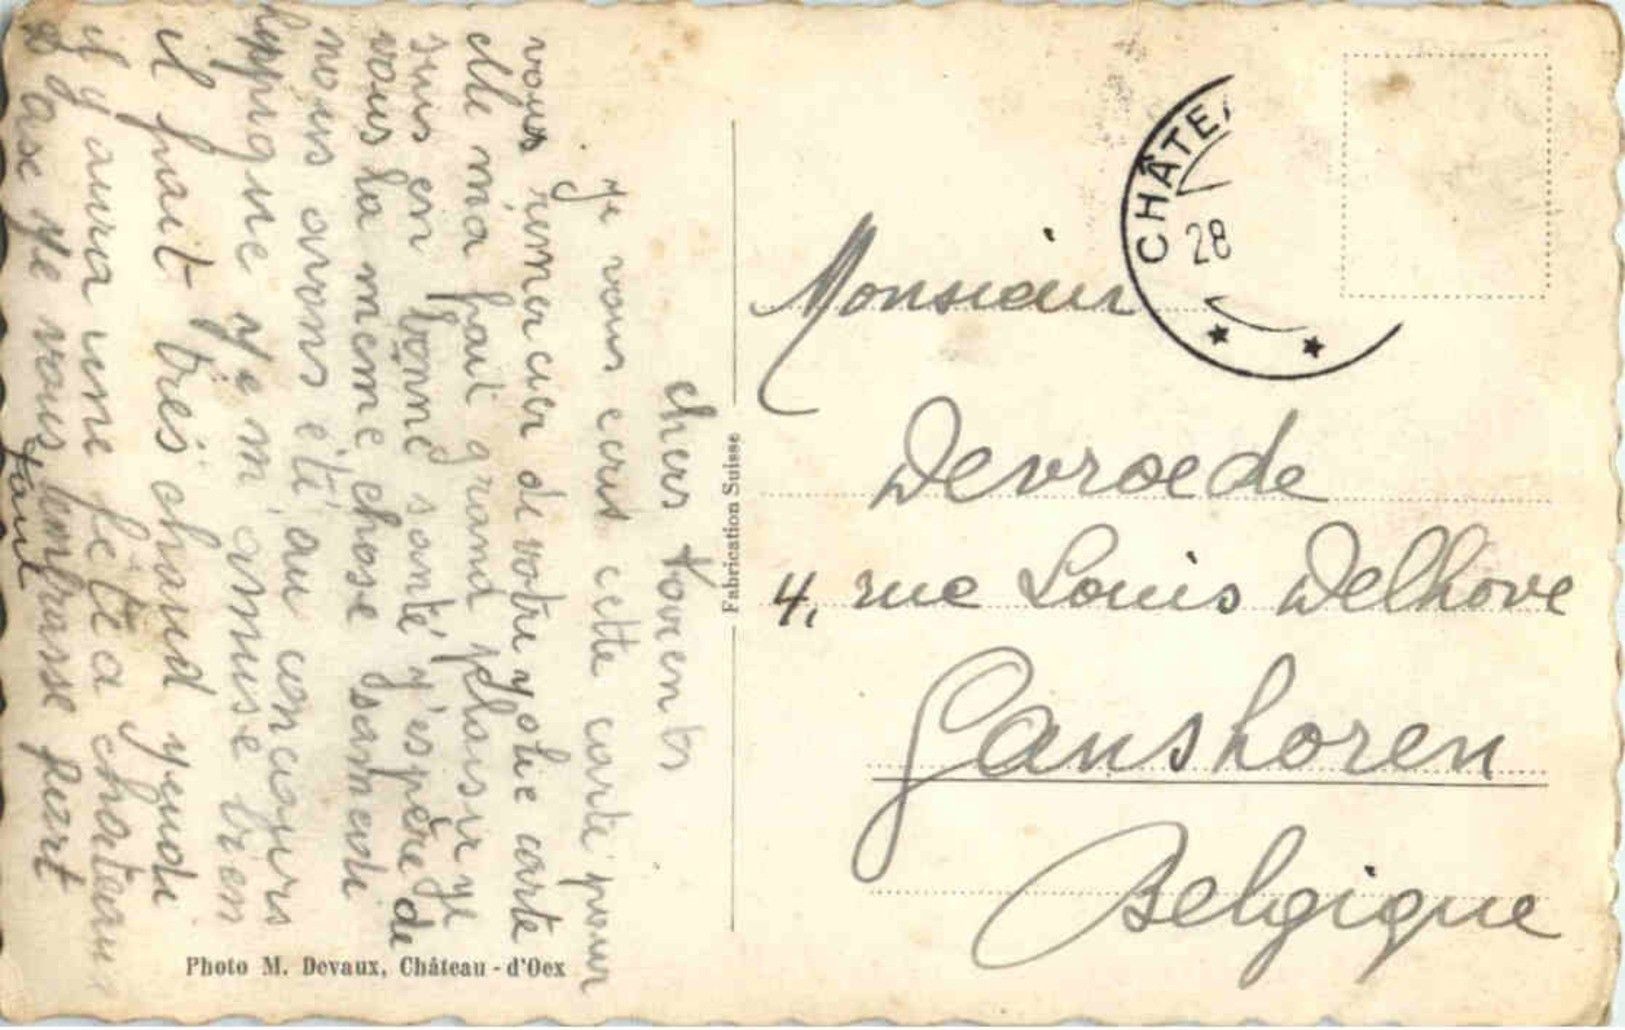 chers Parents
je vous ecris cette carte pour
vous remercier de votre yolie carte
elle m'a fait grand plaisir je
suis en bonne santé j'espère de
vous la meme chose samedi
nous avons été au concours
hippique je m'amuse bien
il fait très chaud jeudi
il y aura une fête a chateau
d'oex je vous embrasse
Paul
Photo M. Devaux, Château-d'Oex
Fabrication Suisse
CHÂTEA
28
Monsieur
Devroede
4, rue Louis Delhove
Ganshoren
Belgique